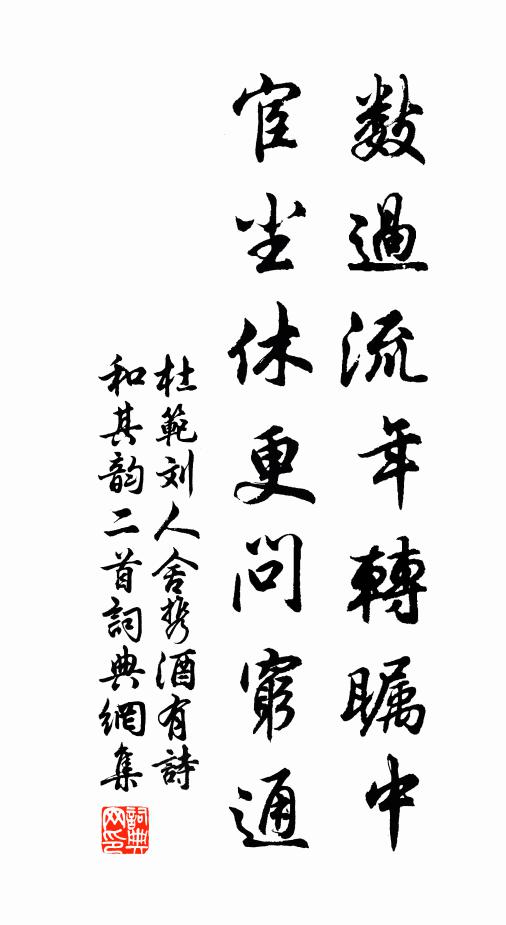 數過流年轉瞩中
宦尘休更問窮通
杜範刘人舍携酒有詩
和其韵二首詞典網集
詞典网印